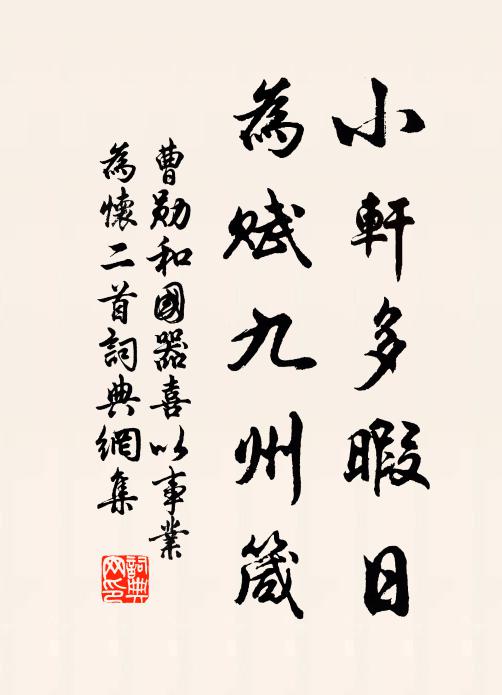 小軒多暇日
為賦九州箴
曹勛和國器喜以事業
為懷二首詞典網集
詞典
网印